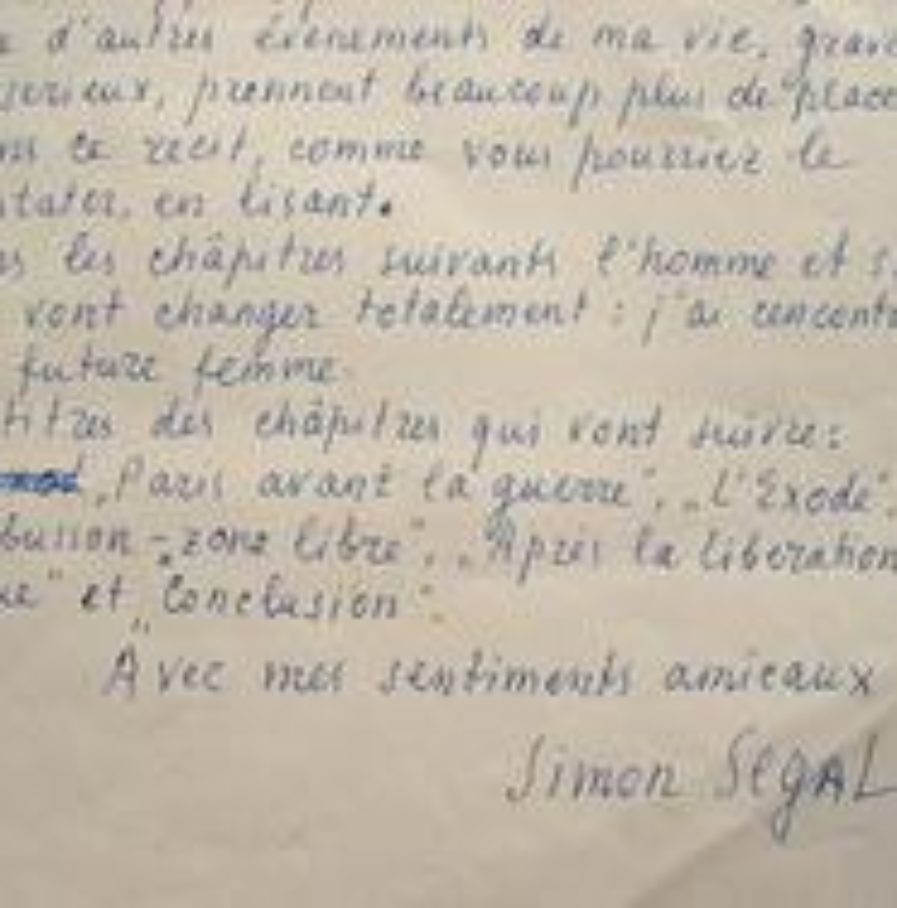 d'autres évènements de ma vie, grave
serieux, prennent beaucoup plus de place
ce recit, comme vous pourriez le
stater, en lisant.
les châpitres suivants l'homme et s
vont changer totalement : j'ai rencontr
future femme.
titres des châpitres qui vont suivre:
„Paris avant la guerre", „L'Exode",
busson - „zone libre", „Après la liberation
ue" et „Conclusion".
Avec mes sentiments amicaux
Simon SEGAL